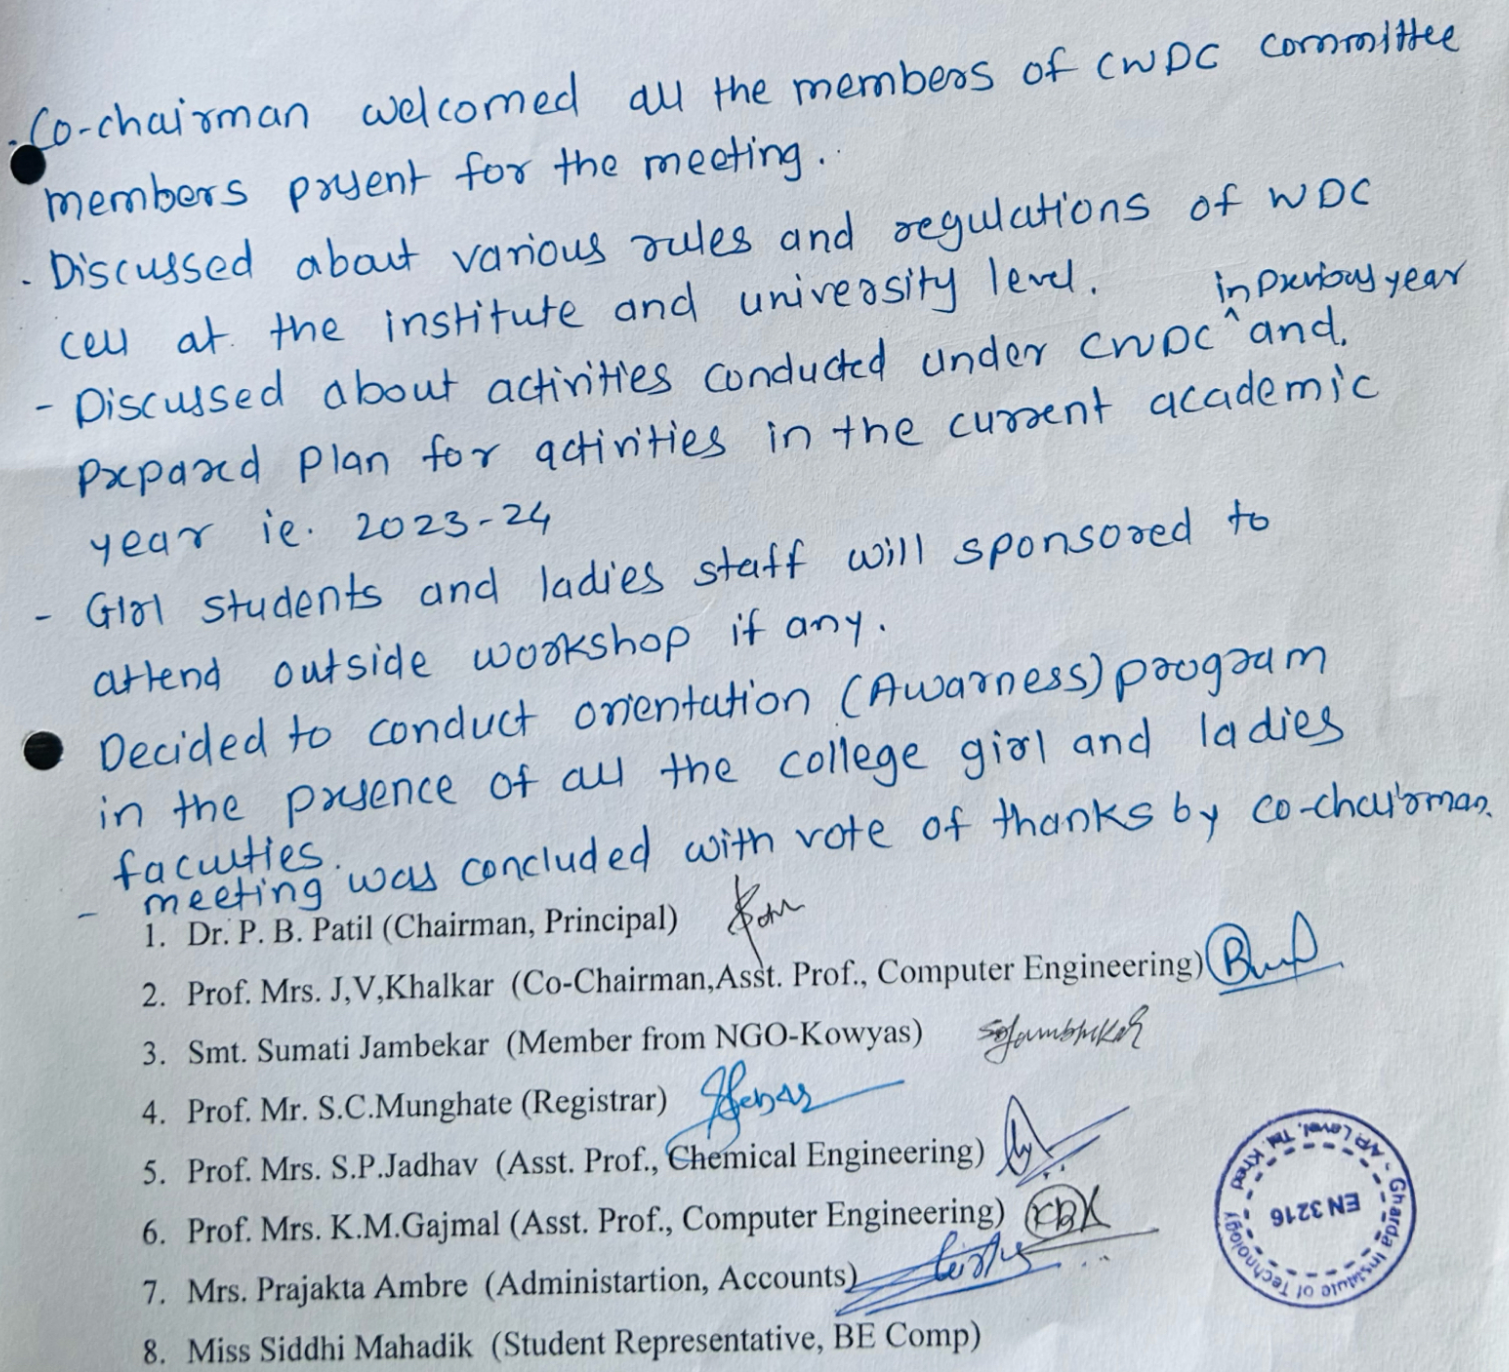 . Co-chairman welcomed all the members of CWDC committee
members present for the meeting.
. Discussed about various rules and regulations of WDC
cell at the institute and university level.
in previous year
- Discussed about activities conducted under CWDC ^ and
prepared plan for activities in the current academic
year ie. 2023-24
- Girl students and ladies staff will sponsored to
attend outside workshop if any.
Decided to conduct orientation (Awarness) program
in the presence of all the college girl and ladies
faculties.
- meeting was concluded with vote of thanks by co-chairman.
1. Dr. P. B. Patil (Chairman, Principal)
2. Prof. Mrs. J,V,Khalkar (Co-Chairman,Asst. Prof., Computer Engineering)
3. Smt. Sumati Jambekar (Member from NGO-Kowyas)
4. Prof. Mr. S.C.Munghate (Registrar)
5. Prof. Mrs. S.P.Jadhav (Asst. Prof., Chemical Engineering)
6. Prof. Mrs. K.M.Gajmal (Asst. Prof., Computer Engineering)
7. Mrs. Prajakta Ambre (Administartion, Accounts)
8. Miss Siddhi Mahadik (Student Representative, BE Comp)
Gharda Institute of Technology
A/P Lavel, Tal. Khed
EN 3216